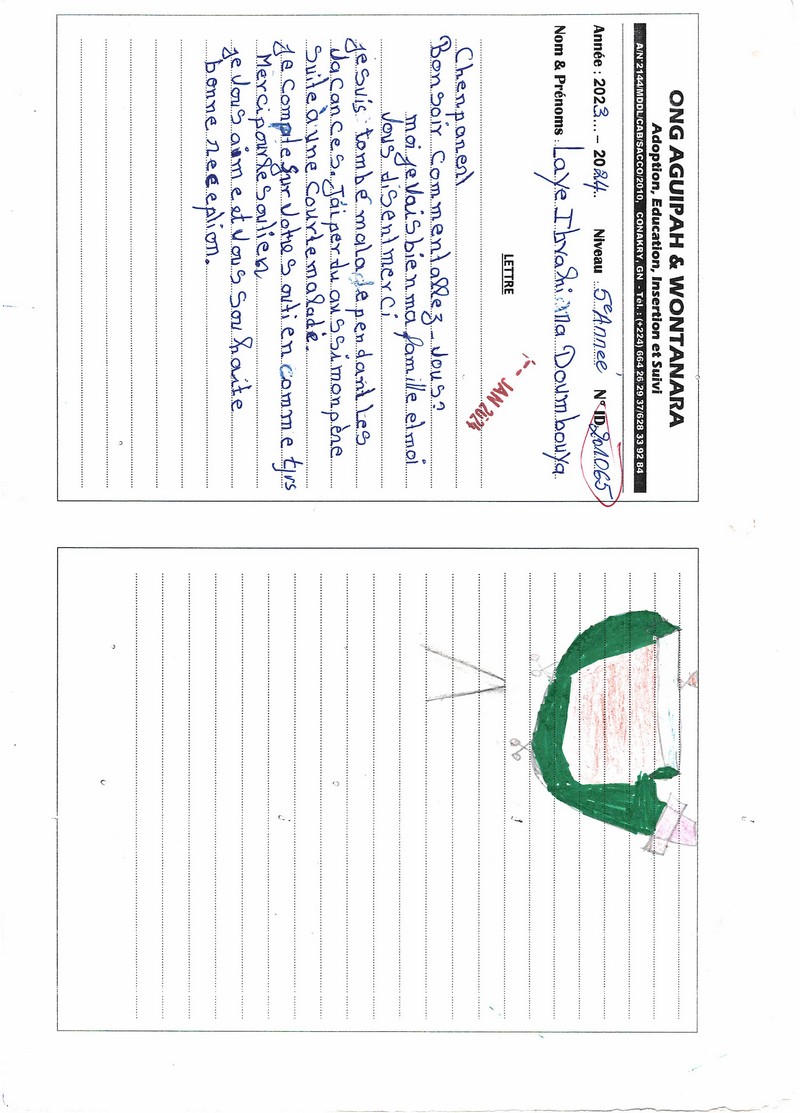 ONG AGUIPAH & WONTANARA
Adoption, Education, Insertion et Suivi
A/N°2144/MDDL/CAB/SACCO/2010, CONAKRY, GN - Tél. : (+224) 664 26 29 37/628 33 92 84
Année : 2023 - 2024. Niveau : 5e Année N° ID 201065
Nom & Prénoms : Laye Ibrahima Doumbouya
LETTRE
JAN 2024
Cherparent
Bonsoir Commentallez-vous?
moi je vais bien ma famille et moi
vous disent merci
je suis tombé malade pendant les
vacances. J'ai perdu aussi mon père
suite à une Courte maladie.
Je compte sur votre soutien comme tjrs
Merci pour le soutien
Je vous aime et vous souhaite
bonne reception.